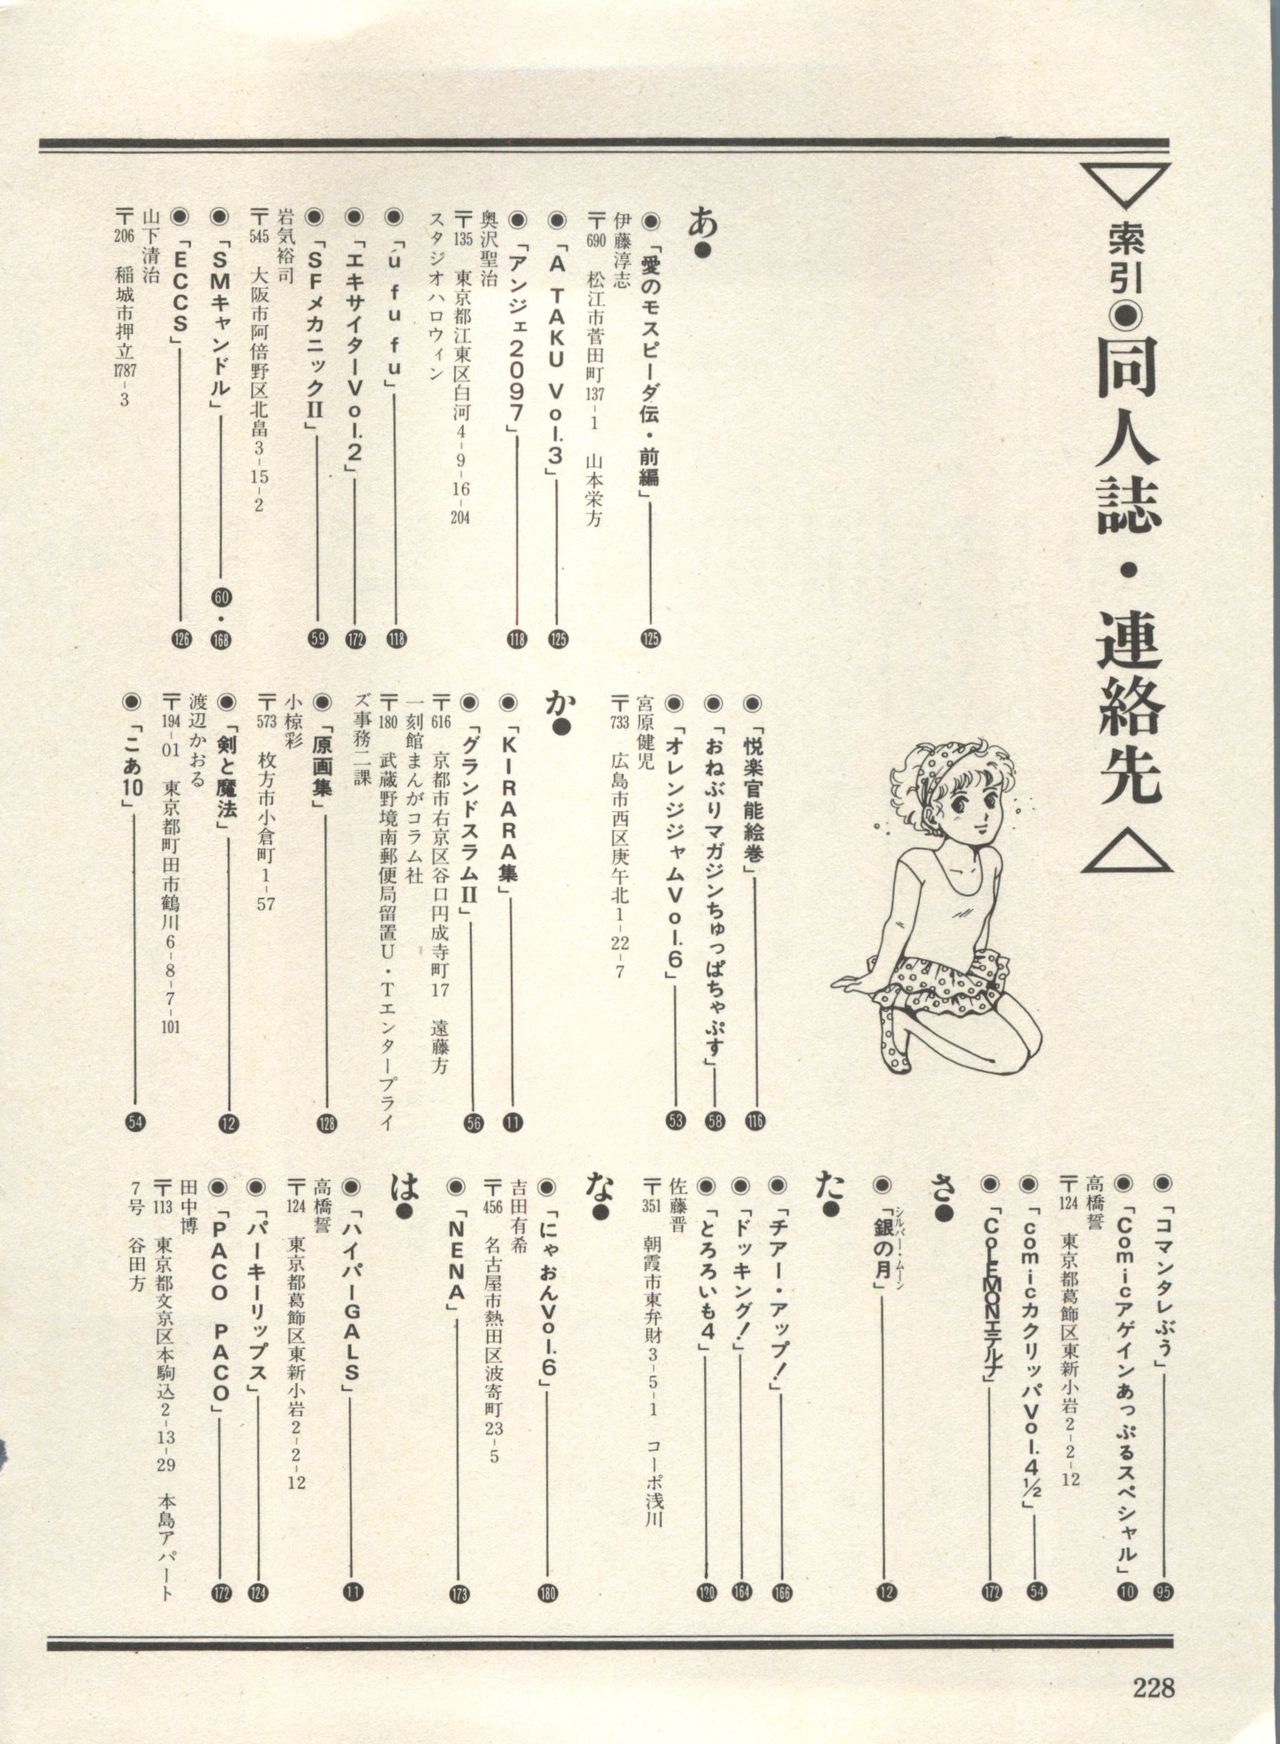 索引◉同人誌・連絡先
あ●
◉「愛のモスピーダ伝・前編」125
伊藤淳志
〒690 松江市菅田町137-1 山本栄方
◉「A TAKU Vol.3」125
◉「アンジェ2097」118
奥沢聖治
〒135 東京都江東区白河4-9-16-204
スタジオハロウィン
◉「u fu fu」118
◉「エキサイターVol.2」172
◉「SFメカニックII」59
岩気裕司
〒545 大阪市阿倍野区北畠3-15-2
◉「SMキャンドル」60・168
◉「ECCS」126
山下清治
〒206 稲城市押立1787-3
◉「悦楽官能絵巻」116
◉「おねぶりマガジンちゅっぱちゃぷす」58
◉「オレンジジャムVol.6」53
宮原健児
〒733 広島市西区庚午北1-22-7
か●
◉「KIRARA集」11
◉「グランドスラムII」56
〒616 京都市右京区谷口円成寺町17 遠藤方
一刻館まんがコラム社
〒180 武蔵野境南郵便局留置U・Tエンタープライ
ズ事務二課
◉「原画集」128
小椋彩
〒573 枚方市小倉町1-57
◉「剣と魔法」12
渡辺かおる
〒194-01 東京都町田市鶴川6-8-7-101
◉「こあ10」54
◉「コマンタレぶう」95
◉「Comicアゲインあっぷるスペシャル」10
高橋誓
〒124 東京都葛飾区東新小岩2-2-12
◉「comicカクリッパVol.4½」54
◉「CoLEMONエテルナ」172
さ●
◉「銀の月」12
シルバー・ムーン
た●
◉「チアー・アップ!」166
◉「ドッキング!」164
◉「とろろいも4」120
佐藤晋
〒351 朝霞市東弁財3-5-1 コーポ浅川
な●
◉「にゃおんVol.6」180
吉田有希
〒456 名古屋市熱田区波寄町23-5
◉「NENA」173
は●
◉「ハイパーGALS」11
高橋誓
〒124 東京都葛飾区東新小岩2-2-12
◉「パーキーリップス」124
◉「PACO PACO」172
田中博
〒113 東京都文京区本駒込2-13-29 本島アパート
7号 谷田方
228